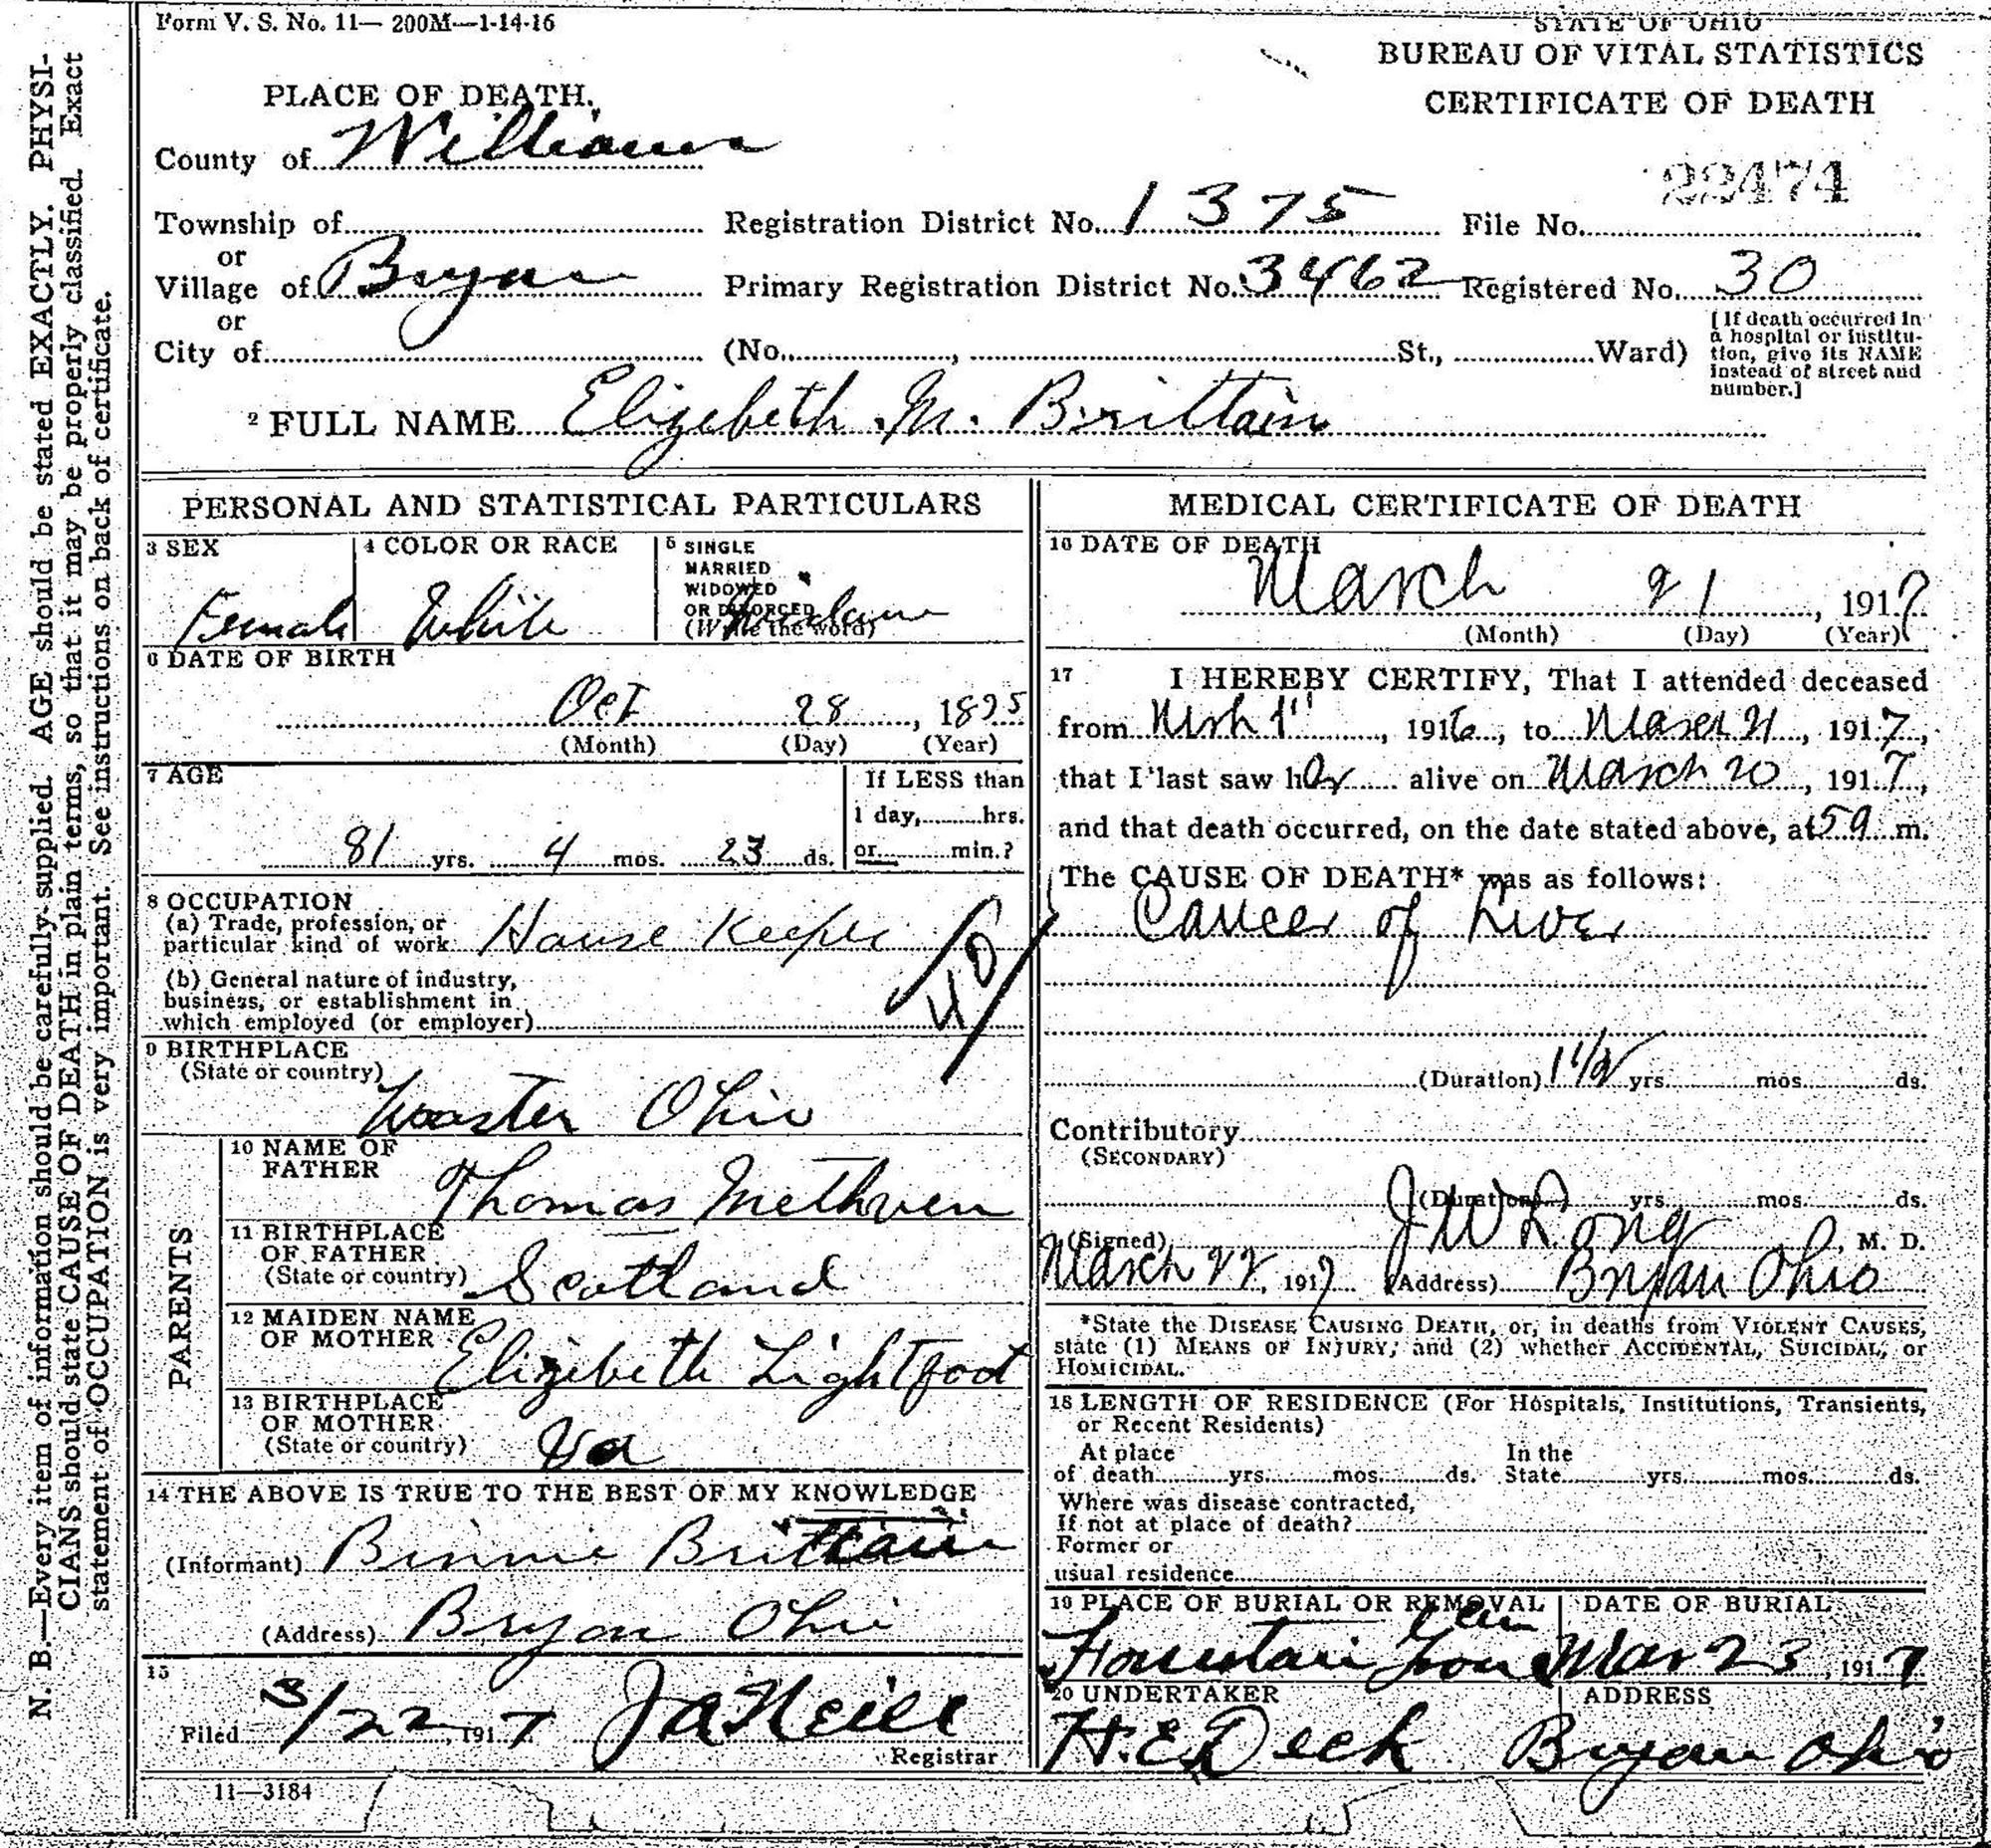 Form V. S. No. 11— 200M—1-14-16
STATE OF OHIO
BUREAU OF VITAL STATISTICS
CERTIFICATE OF DEATH
PLACE OF DEATH.
County of Williams
22474
Township of Registration District No. 1375 File No.
or
Village of Bryan Primary Registration District No. 3462 Registered No. 30
or
City of (No. , St., Ward)
[If death occurred in
a hospital or institu-
tion, give its NAME
instead of street and
number.]
2 FULL NAME Elizebeth M. Brittain
PERSONAL AND STATISTICAL PARTICULARS
3 SEX 4 COLOR OR RACE 5 SINGLE
MARRIED
WIDOWED
OR DIVORCED
(Write the word)
Female White
6 DATE OF BIRTH
Oct 28, 1835
(Month) (Day) (Year)
7 AGE If LESS than
1 day, hrs.
81 yrs. 4 mos. 23 ds. or min.?
8 OCCUPATION
(a) Trade, profession, or
particular kind of work House Keeper
(b) General nature of industry,
business, or establishment in
which employed (or employer)
40
9 BIRTHPLACE
(State or country)
Wooster Ohio
PARENTS
10 NAME OF
FATHER Thomas Methven
11 BIRTHPLACE
OF FATHER
(State or country) Scotland
12 MAIDEN NAME
OF MOTHER Elizebeth Lightfoot
13 BIRTHPLACE
OF MOTHER
(State or country) Va
14 THE ABOVE IS TRUE TO THE BEST OF MY KNOWLEDGE
(Informant) Binnie Brittain
(Address) Bryan Ohio
15
Filed 3/22, 1917 J A Neill
Registrar
11—3184
MEDICAL CERTIFICATE OF DEATH
16 DATE OF DEATH
March 21, 1917
(Month) (Day) (Year)
17 I HEREBY CERTIFY, That I attended deceased
from 1", 1916, to March 21, 1917,
that I last saw her alive on March 20, 1917,
and that death occurred, on the date stated above, at 5 a m.
The CAUSE OF DEATH* was as follows:
Cancer of Liver
(Duration) 1 1/2 yrs. mos. ds.
Contributory
(SECONDARY)
(Duration) yrs. mos. ds.
(Signed) J W Long, M. D.
March 22, 1917 (Address) Bryan Ohio
*State the DISEASE CAUSING DEATH, or, in deaths from VIOLENT CAUSES,
state (1) MEANS OF INJURY; and (2) whether ACCIDENTAL, SUICIDAL, or
HOMICIDAL.
18 LENGTH OF RESIDENCE (For Hospitals, Institutions, Transients,
or Recent Residents)
At place In the
of death yrs. mos. ds. State yrs. mos. ds.
Where was disease contracted,
If not at place of death?
Former or
usual residence
19 PLACE OF BURIAL OR REMOVAL DATE OF BURIAL
Fountain Grove Cem Mar 23, 1917
20 UNDERTAKER ADDRESS
H. E. Deck Bryan Ohio
N. B.—Every item of information should be carefully supplied. AGE should be stated EXACTLY. PHYSI-
CIANS should state CAUSE OF DEATH in plain terms, so that it may be properly classified. Exact
statement of OCCUPATION is very important. See instructions on back of certificate.